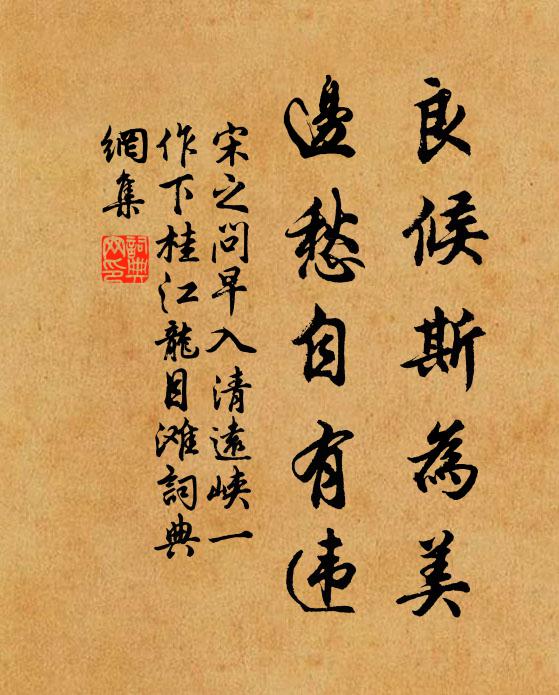 良候斯為美
邊愁自有违
宋之问早入清遠峡一
作下桂江龍目滩詞典
網集
詞典
网印